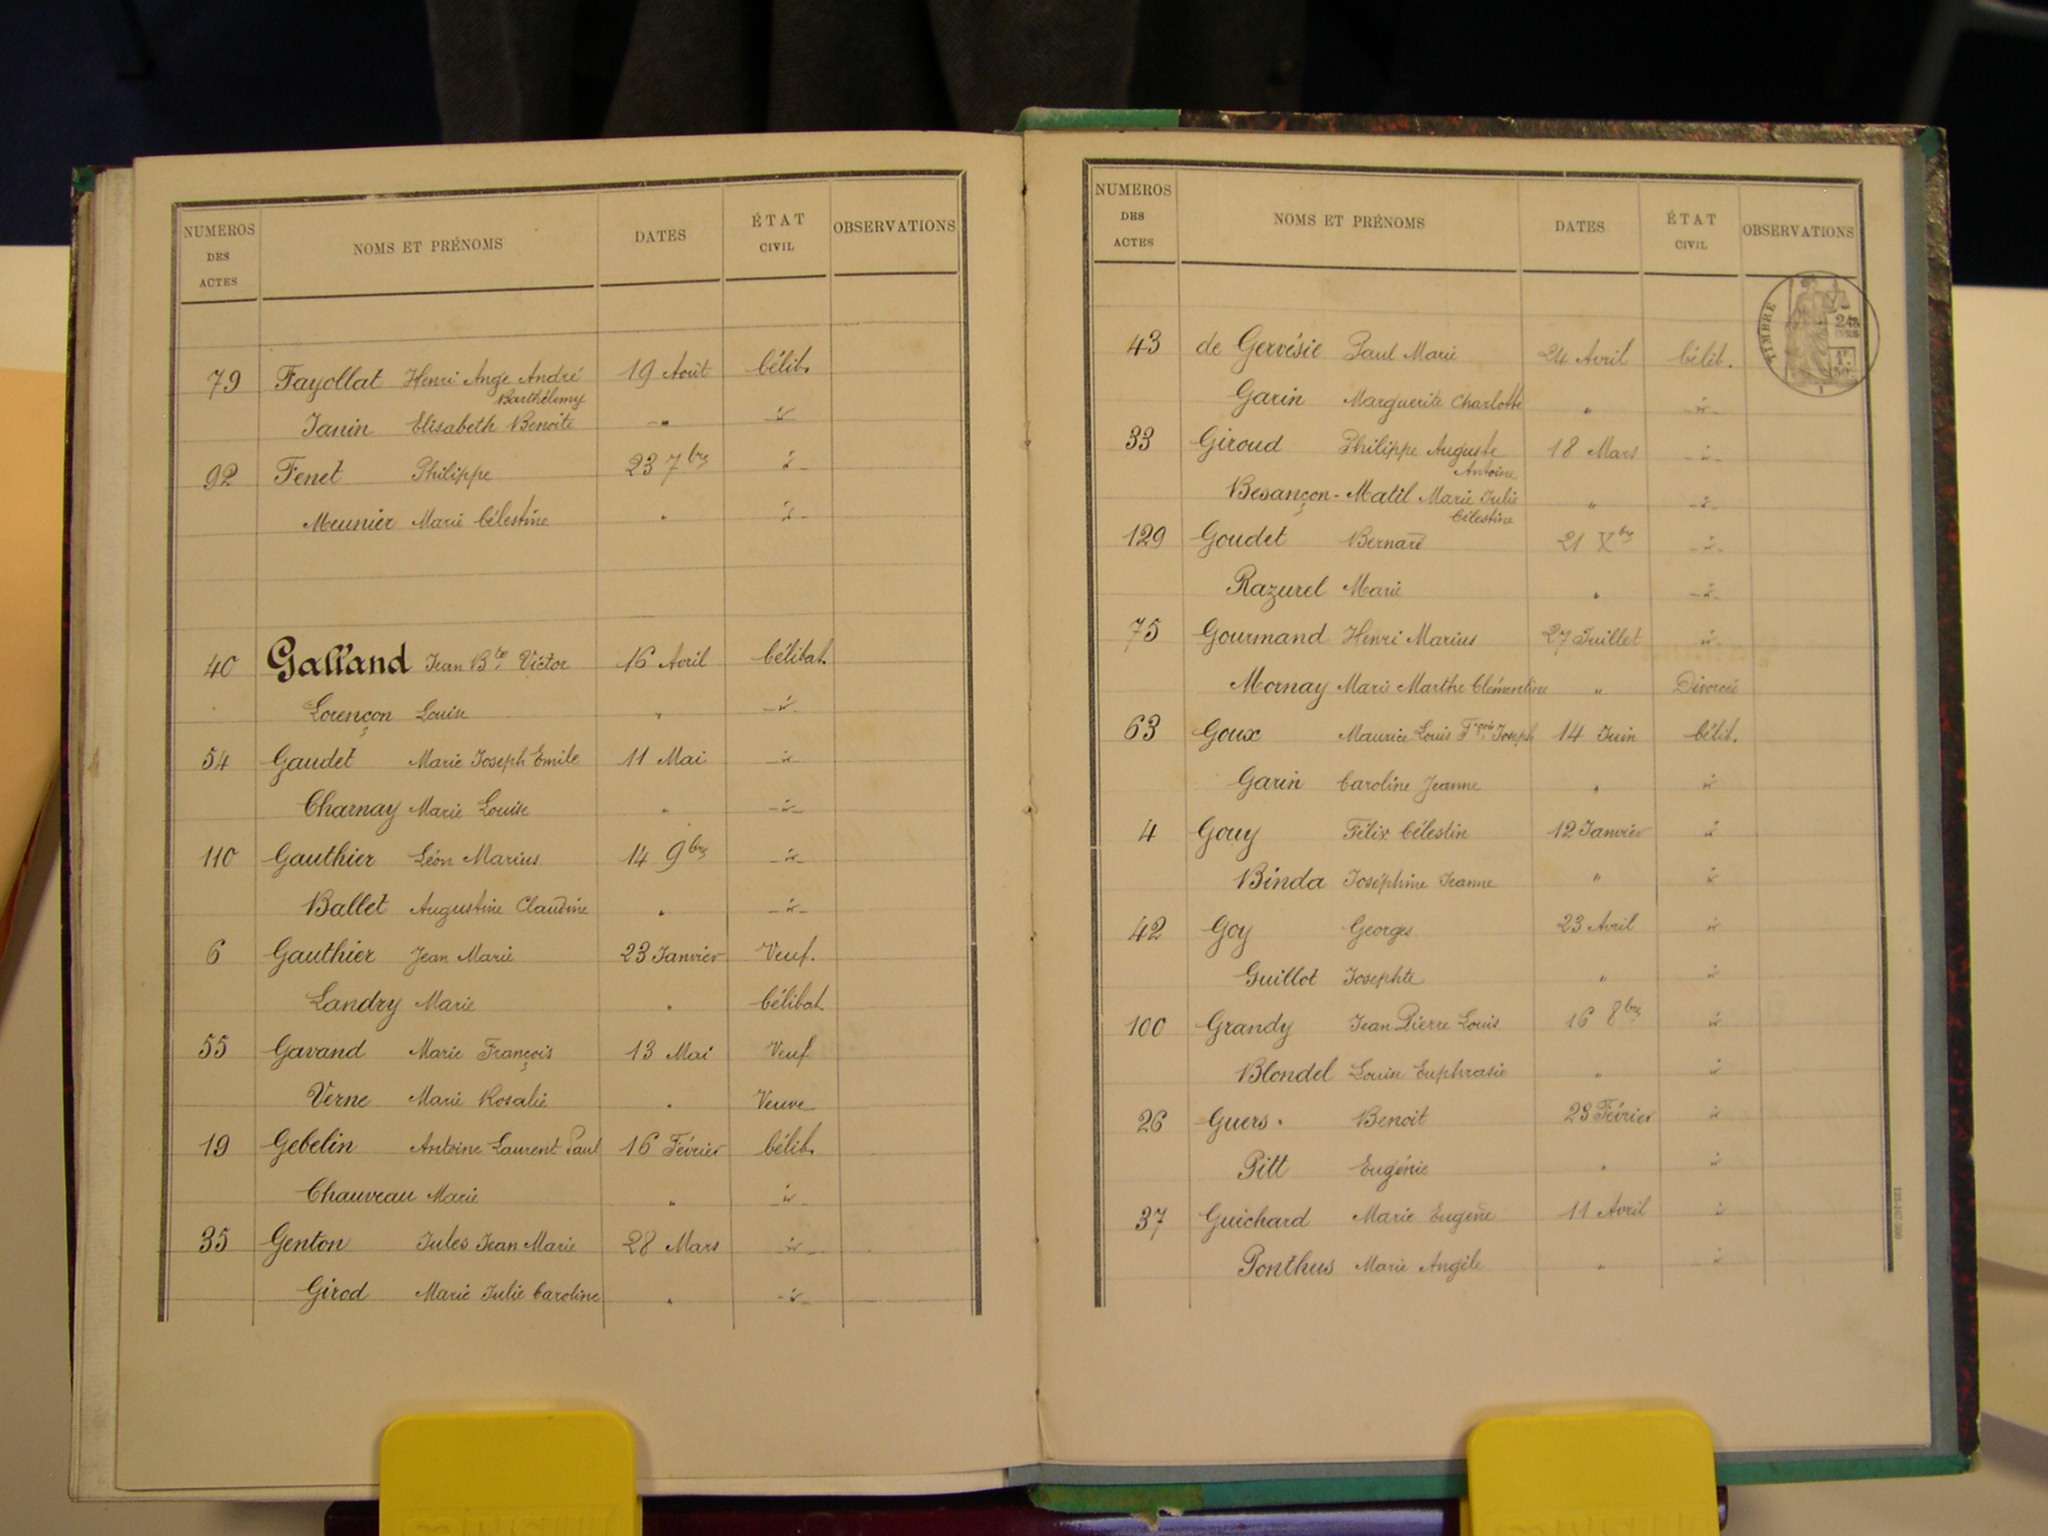 NUMEROS DES ACTES NOMS ET PRÉNOMS DATES ÉTAT CIVIL OBSERVATIONS
79 Fayollat Henri Ange André 19 Août Célib.
Barthélemy
Janin Elisabeth Benoite " d°
92 Fenet Philippe 23 7bre d°
Meunier Marie Célestine " d°
40 Galland Jean Bte Victor 16 Avril Célibat.
Lorençon Louise " d°
54 Gaudet Marie Joseph Emile 11 Mai d°
Charnay Marie Louise " d°
110 Gauthier Léon Marius 14 9bre d°
Ballet Augustine Claudine " d°
6 Gauthier Jean Marie 23 Janvier Veuf.
Landry Marie " Célibat.
55 Gavand Marie François 13 Mai Veuf
Verne Marie Rosalie " Veuve
19 Gebelin Antoine Laurent Paul 16 Février Célib.
Chauveau Marie " d°
35 Genton Jules Jean Marie 28 Mars d°
Girod Marie Julie Caroline " d°
NUMEROS DES ACTES NOMS ET PRÉNOMS DATES ÉTAT CIVIL OBSERVATIONS
TIMBRE
43 de Gervésie Paul Marie 24 Avril Célib.
Garin Marguerite Charlotte " d°
33 Giroud Philippe Auguste 18 Mars d°
Antoine
Besançon-Matil Marie Julie " d°
Célestine
129 Goudet Bernard 21 Xbre d°
Razurel Marie " d°
75 Gourmand Henri Marius 27 Juillet d°
Mornay Marie Marthe Clémentine " Divorcée
63 Goux Maurice Louis Fçois Joseph 14 Juin Célib.
Garin Caroline Jeanne " d°
4 Gouy Félix Célestin 12 Janvier d°
Binda Joséphine Jeanne " d°
42 Goy Georges 23 Avril d°
Guillot Josephte " d°
100 Grandy Jean Pierre Louis 16 8bre d°
Blondel Louise Euphrasie " d°
26 Guers. Benoit 28 Février d°
Pitt Eugénie " d°
37 Guichard Marie Eugène 11 Avril d°
Ponthus Marie Angèle " d°